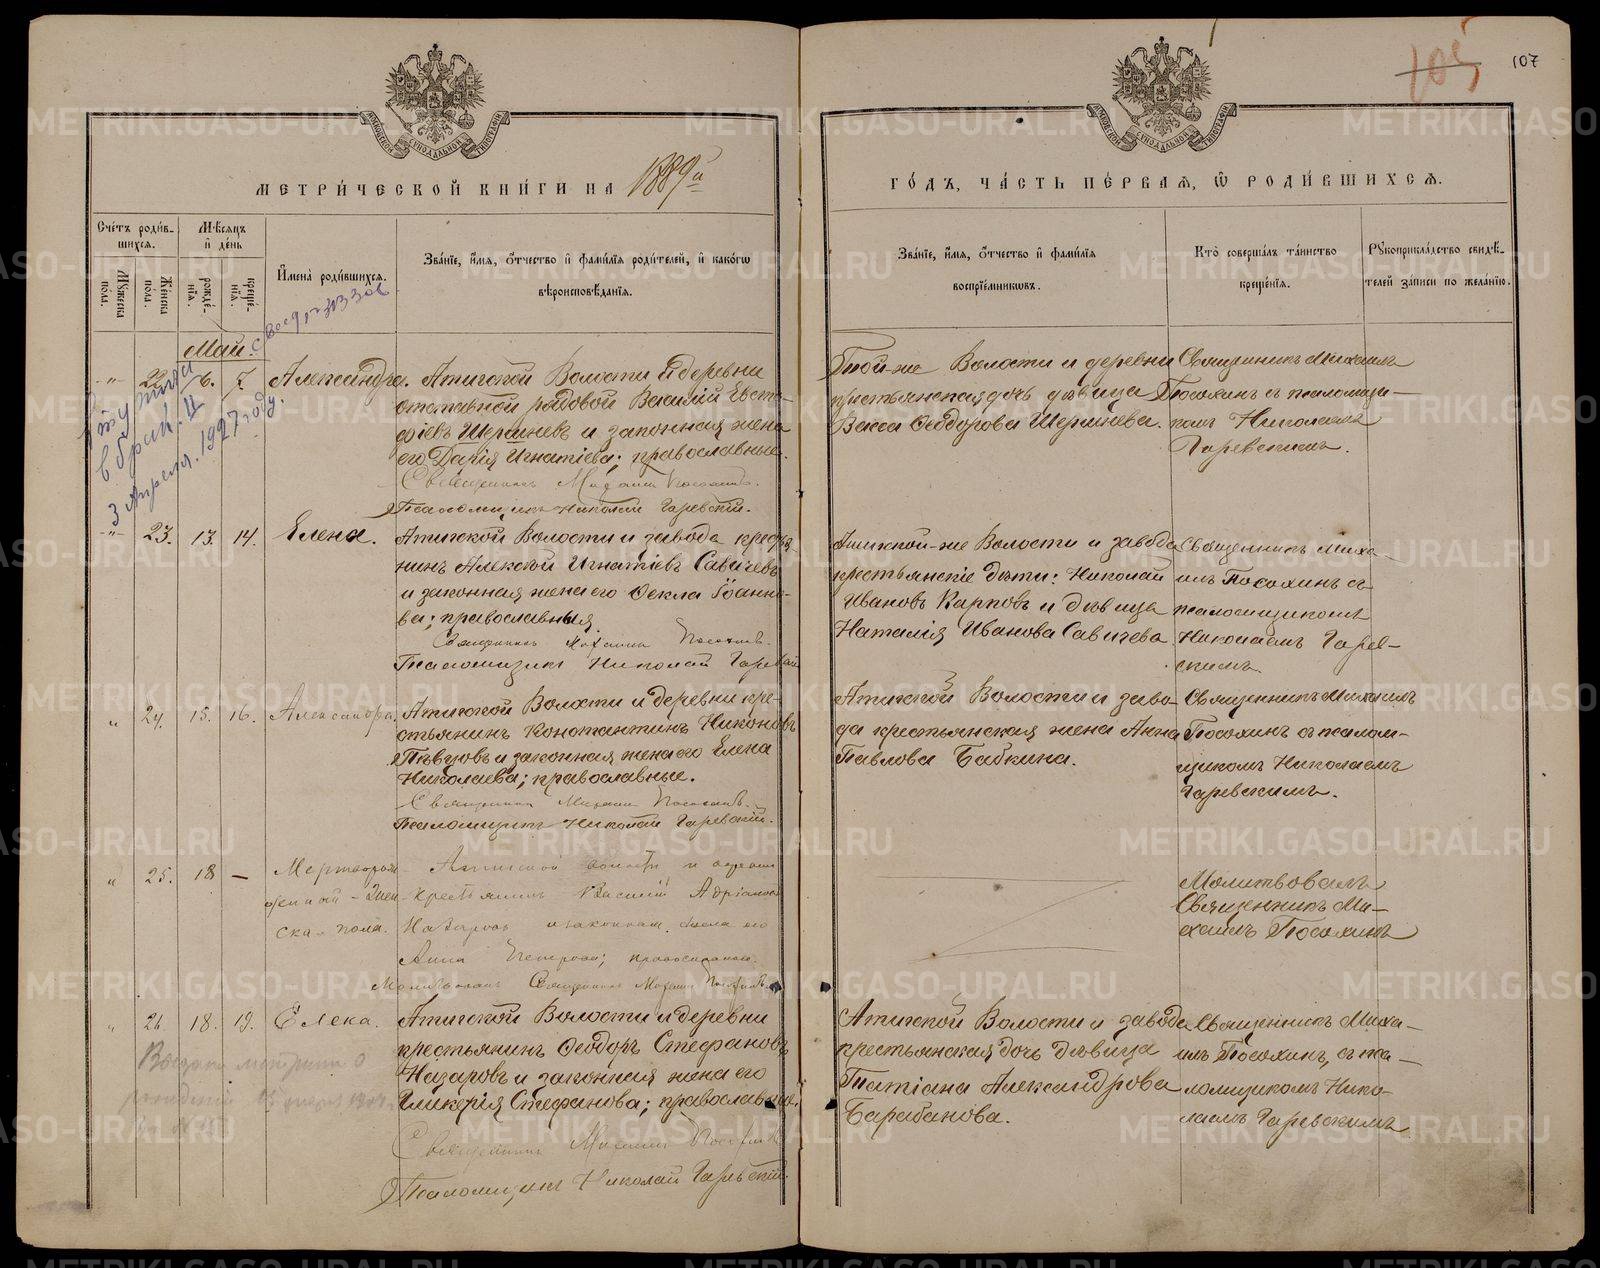 105
107
МЕТРИ́ЧЕСКОЙ КНИ́ГИ НА 1889й
ГО́ДЪ, ЧА́СТЬ ПЕ́РВАЯ, Ѡ РОДИ́ВШИХСЯ.
Сче́тъ роди́в-
шихся.
Мѣ́сяцъ
и҆ де́нь
Му́жеска
по́ла.
Же́нска
по́ла.
рожде́-
нїя.
креще́-
нїя.
И҆мена̀ роди́вшихся.
Зва́нїе, и҆́мя, о҆́тчество и҆ фами́лїя роди́телей, и҆ како́гѡ
вѣроисповѣ́данїя.
Зва́нїе, и҆́мя, о҆́тчество и҆ фами́лїя
воспрїе́мникѡвъ.
Кто̀ соверша́лъ та́инство
креще́нїя.
Рꙋкоприкла́дство свидѣ́-
телей за́писи по жела́нїю.
Май.
в брак. II
3 Апреля. 1927 году.
„ 22. 6. 7. Александра.
Атигской Волости и деревни
отставной рядовой Василій Евста-
фіевъ Шершневъ и законная жена
его Дарія Игнатіева; православные.
Священникъ Михаилъ Посохинъ.
Псаломщикъ Николай Гаревскій.
Той-же Волости и деревни
крестьянская дочь дѣвица
Васса Ѳеодорова Шершнева.
Священникъ Михаилъ
Посохинъ съ псаломщи-
комъ Николаемъ
Гаревскимъ.
„ 23. 13. 14. Елена.
Атигской Волости и завода крестья
нинъ Алексѣй Игнатіевъ Савичевъ
и законная жена его Ѳекла Іоанно-
ва; православныя.
Священникъ Михаилъ Посохинъ.
Псаломщикъ Николай Гаревскій
Атигской-же Волости и завода
крестьянскіе дѣти: Николай
Ивановъ Карповъ и дѣвица
Наталія Иванова Савичева.
Священникъ Миха-
илъ Посохинъ съ
псаломщикомъ
Николаемъ Гарев-
скимъ
„ 24. 15. 16. Александра.
Атигской Волости и деревни кре-
стьянинъ Константинъ Никоновъ
Пѣвцовъ и законная жена его Елена
Николаева; православные.
Священникъ Михаилъ Посохинъ.
Псаломщикъ Николай Гаревскій.
Атигской Волости и заво-
да крестьянская жена Анна
Павлова Бабкина.
Священникъ Михаилъ
Посохинъ съ псалом-
щикомъ Николаемъ
Гаревскимъ.
„ 25. 18 — Мерторож-
денный - Жен-
ска пола.
Атигской волости и деревни
крестьянинъ Василій Адріановъ
Назаровъ и законная жена его
Анна Петрова; православные.
Молитвовалъ Священникъ Михаилъ Посохинъ
Молитвовалъ
Священникъ Ми-
хаилъ Посохинъ
„ 26. 18. 19. Елена.
Атигской Волости и деревни
крестьянинъ Ѳеодоръ Стефановъ
Назаровъ и законная жена его
Гликерія Стефанова; православные.
Священникъ Михаилъ Посохинъ
Псаломщикъ Николай Гаревскій.
Атигской Волости и завода
крестьянская дочь дѣвица
Татіана Александрова
Барабанова.
Священникъ Миха-
илъ Посохинъ, съ пса-
ломщикомъ Нико-
лаемъ Гаревскимъ
METRIKI.GASO-URAL.RU